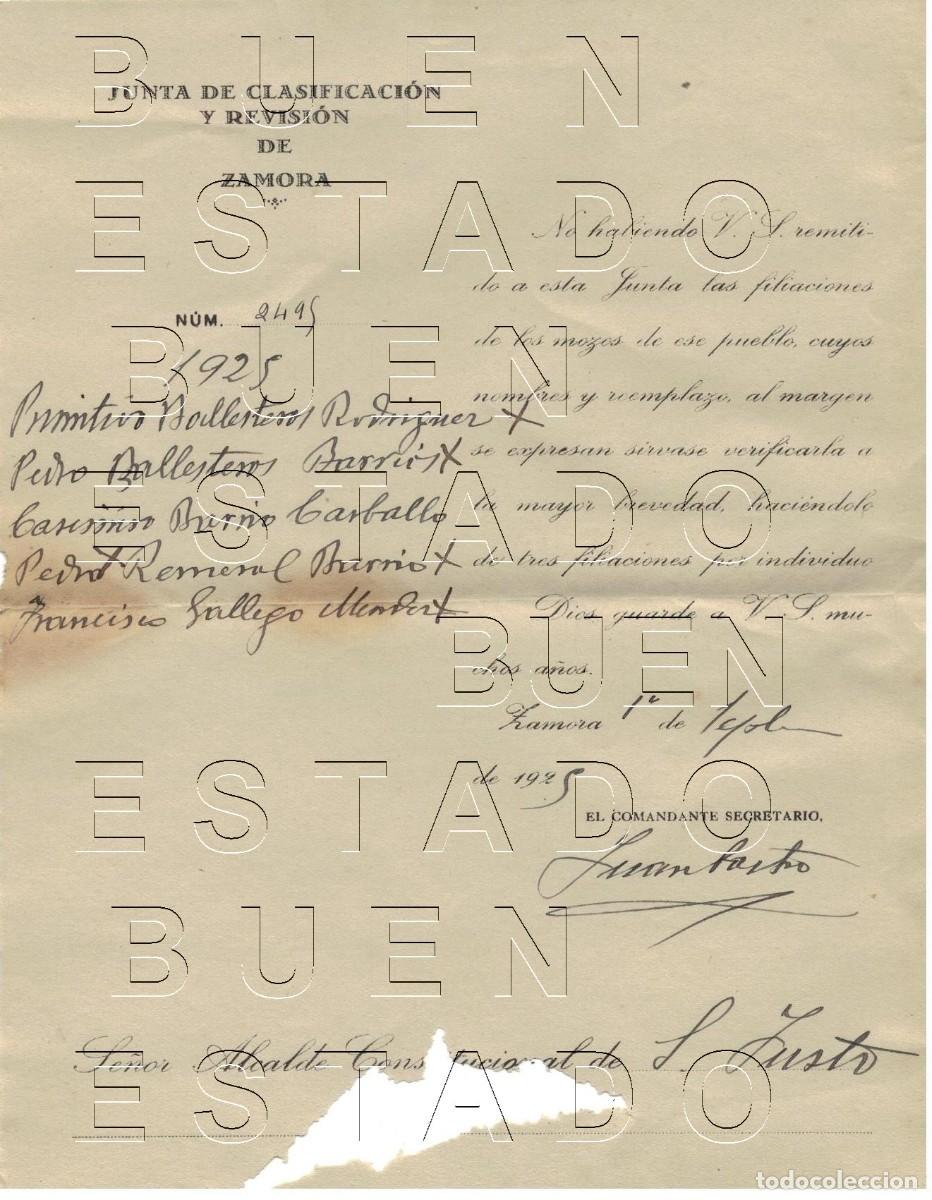 JUNTA DE CLASIFICACIÓN
Y REVISIÓN
DE
ZAMORA
NÚM. 2495
1925
Primitivo Ballesteros Rodriguez X
Pedro Ballesteros Barrios X
Casimiro Barrio Carballo
Pedro X Remesal Barrio X
Francisco Gallego Mendez X
No habiendo V. S. remiti-
do a esta Junta las filiaciones
de los mozos de ese pueblo, cuyos
nombres y reemplazo, al margen
se expresan sirvase verificarla a
la mayor brevedad, haciéndolo
de tres filiaciones por individuo
Dios guarde a V. S. mu-
chos años.
Zamora 1º de Sepbre
de 1925
EL COMANDANTE SECRETARIO,
Juan Castro
Señor Alcalde Constitucional de S. Justo
BUEN
ESTADO
BUEN
ESTADO
BUEN
ESTADO
BUEN
ESTADO
todocoleccion